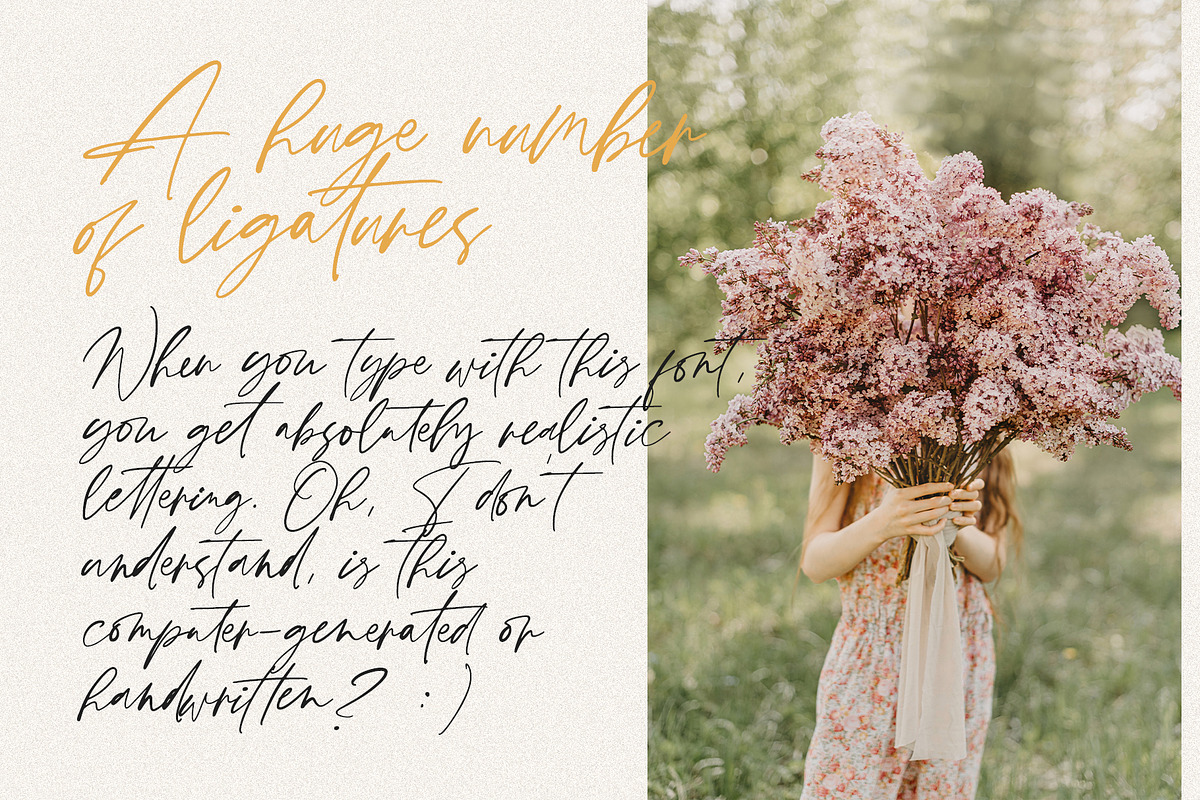 A huge number
of ligatures
When you type with this font,
you get absolutely realistic
lettering. Oh, I don't
understand, is this
computer-generated or
handwritten? :)